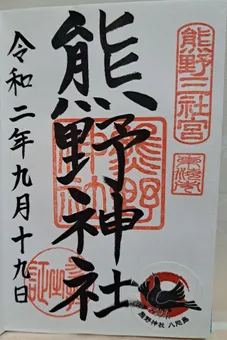 熊野三社宮
熊野神社
令和二年九月十九日
熊野神社 八咫烏